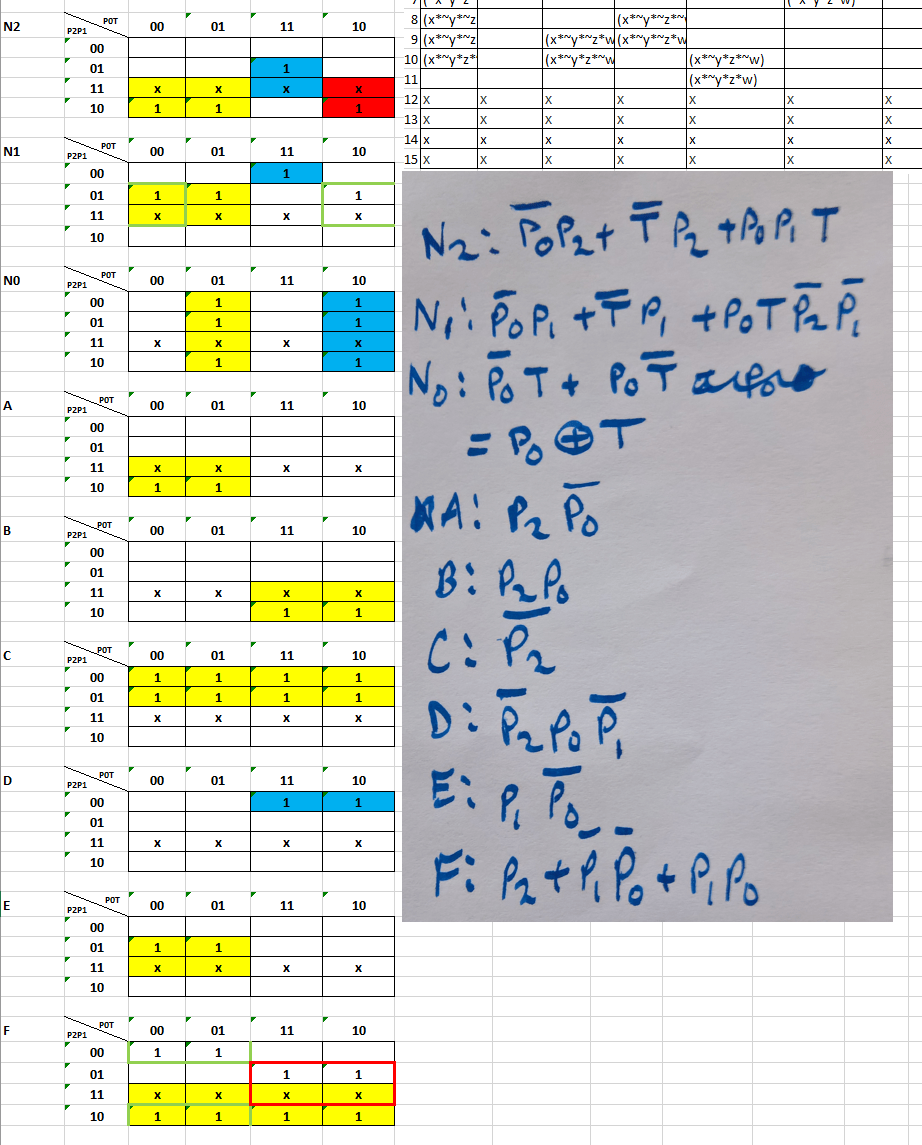 N2 P2P1 P0T 00 01 11 10
00
01 1
11 x x x x
10 1 1 1
N1 P2P1 P0T 00 01 11 10
00 1
01 1 1 1
11 x x x x
10
N0 P2P1 P0T 00 01 11 10
00 1 1
01 1 1
11 x x x x
10 1 1
A P2P1 P0T 00 01 11 10
00
01
11 x x x x
10 1 1
B P2P1 P0T 00 01 11 10
00
01
11 x x x x
10 1 1
C P2P1 P0T 00 01 11 10
00 1 1 1 1
01 1 1 1 1
11 x x x x
10
D P2P1 P0T 00 01 11 10
00 1 1
01
11 x x x x
10
E P2P1 P0T 00 01 11 10
00
01 1 1
11 x x x x
10
F P2P1 P0T 00 01 11 10
00 1 1
01 1 1
11 x x x x
10 1 1 1 1
8 (x*~y*~z (x*~y*~z*~
9 (x*~y*~z (x*~y*~z*w (x*~y*~z*w
10 (x*~y*z* (x*~y*z*~w (x*~y*z*~w)
11 (x*~y*z*w)
12 x x x x x x x
13 x x x x x x x
14 x x x x x x x
15 x x x x x x x
N₂: P̅₀P₂ + T̅ P₂ + P₀P₁ T
N₁: P̅₀P₁ + T̅ P₁ + P₀T P̅₂ P̅₁
N₀: P̅₀ T + P₀ T̅
= P₀ ⊕ T
A: P₂ P̅₀
B: P₂P₀
C: P̅₂
D: P̅₂ P₀ P̅₁
E: P₁ P̅₀
F: P₂ + P̅₁ P̅₀ + P₁P₀